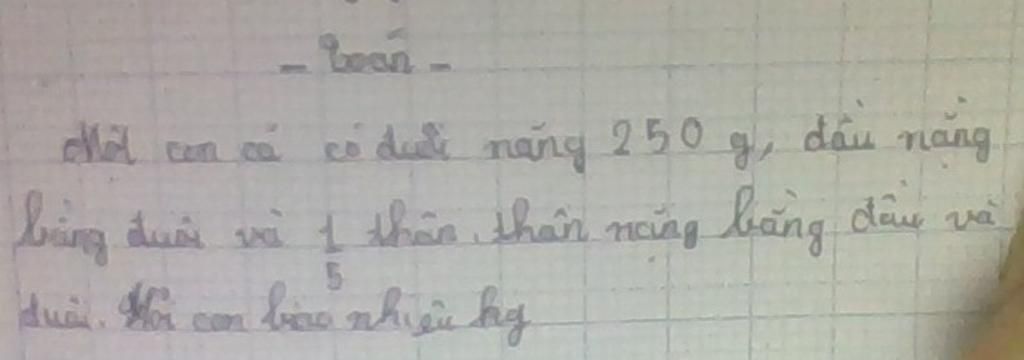 - Toán -
Một con cá có đuôi nặng 250 g, đầu nặng
bằng đuôi và 1/5 thân, thân nặng bằng đầu và
đuôi. Hỏi con bao nhiêu kg